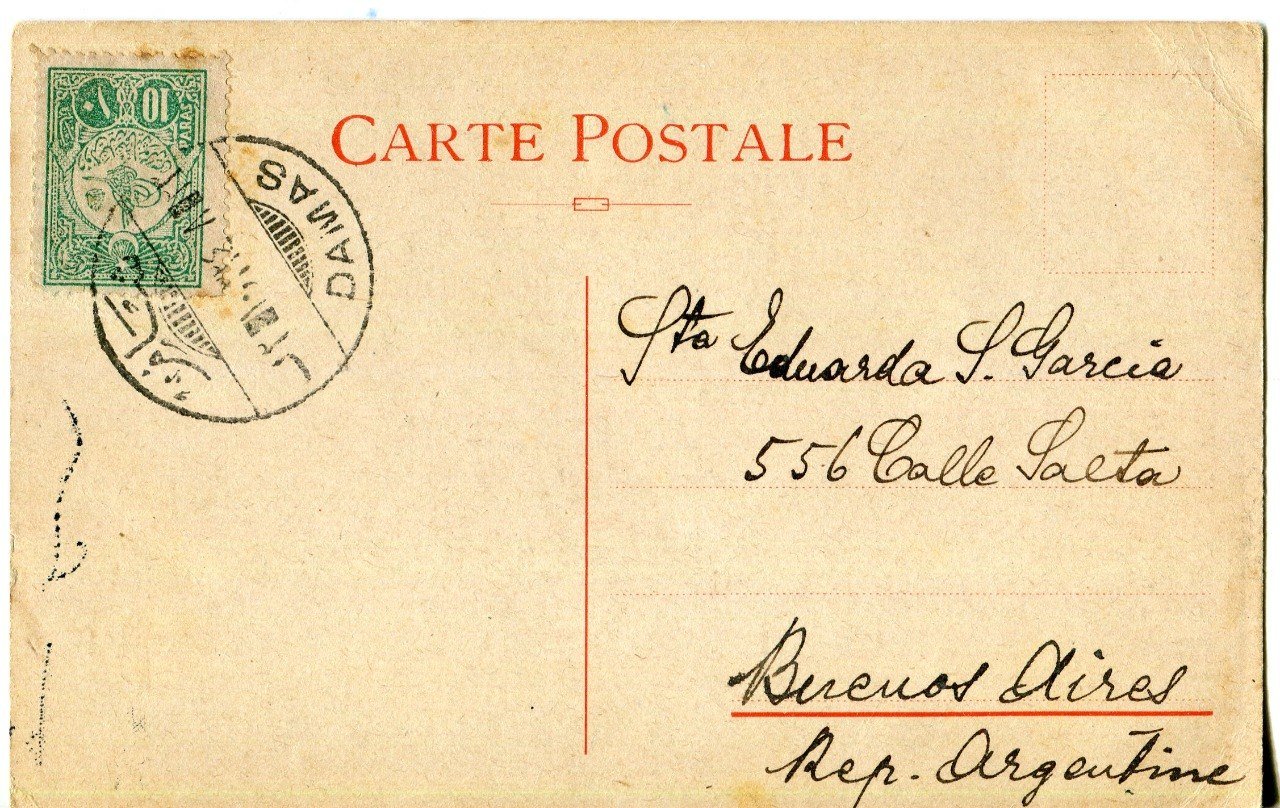 CARTE POSTALE
١٠ 10
PARAS
DAMAS
Sta Eduarda S. Garcia
556 Calle Salta
Buenos Aires
Rep. Argentine